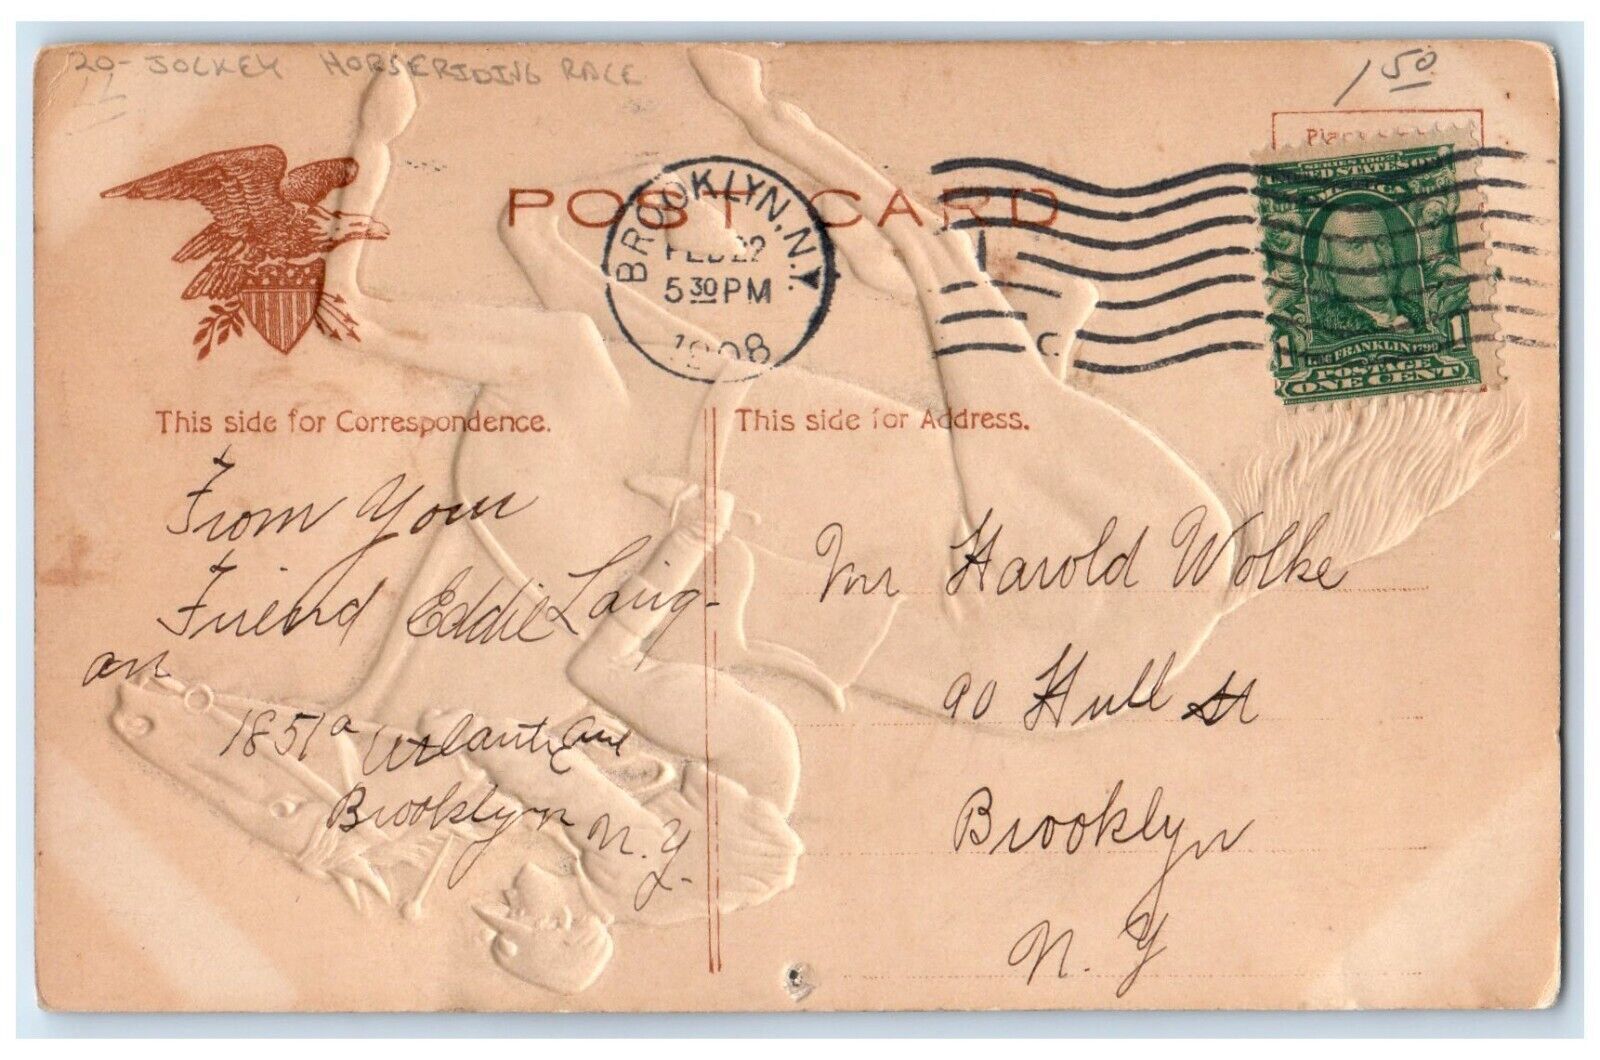 20- JOCKEY HORSERIDING RACE
1 50
POST CARD
BROOKLYN, N.Y.
FEB 22
5 30 PM
1908
SERIES 1902
UNITED STATES OF
AMERICA
1706 FRANKLIN 1790
1 POSTAGE 1
ONE CENT
This side for Correspondence.
This side for Address.
From Your
Friend Eddie Laing-
an
1851a Atlantic Ave
Brooklyn
N.Y.
Mr Harold Wolke
90 Hull St
Brooklyn
N.Y